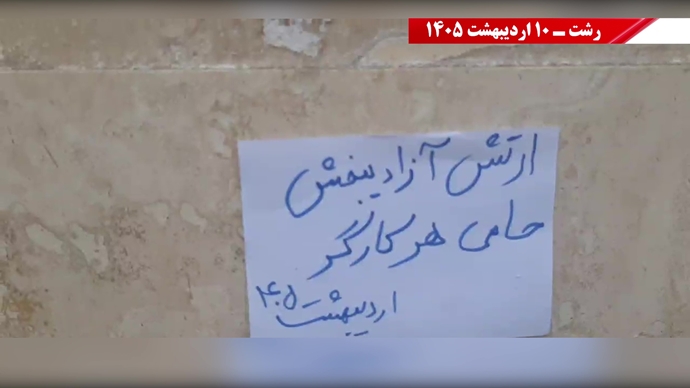 رشت ــ ۱۰ اردیبهشت ۱۴۰۵
ارتش آزادیبخش
حامی هر کارگر
اردیبهشت ۱۴۰۵